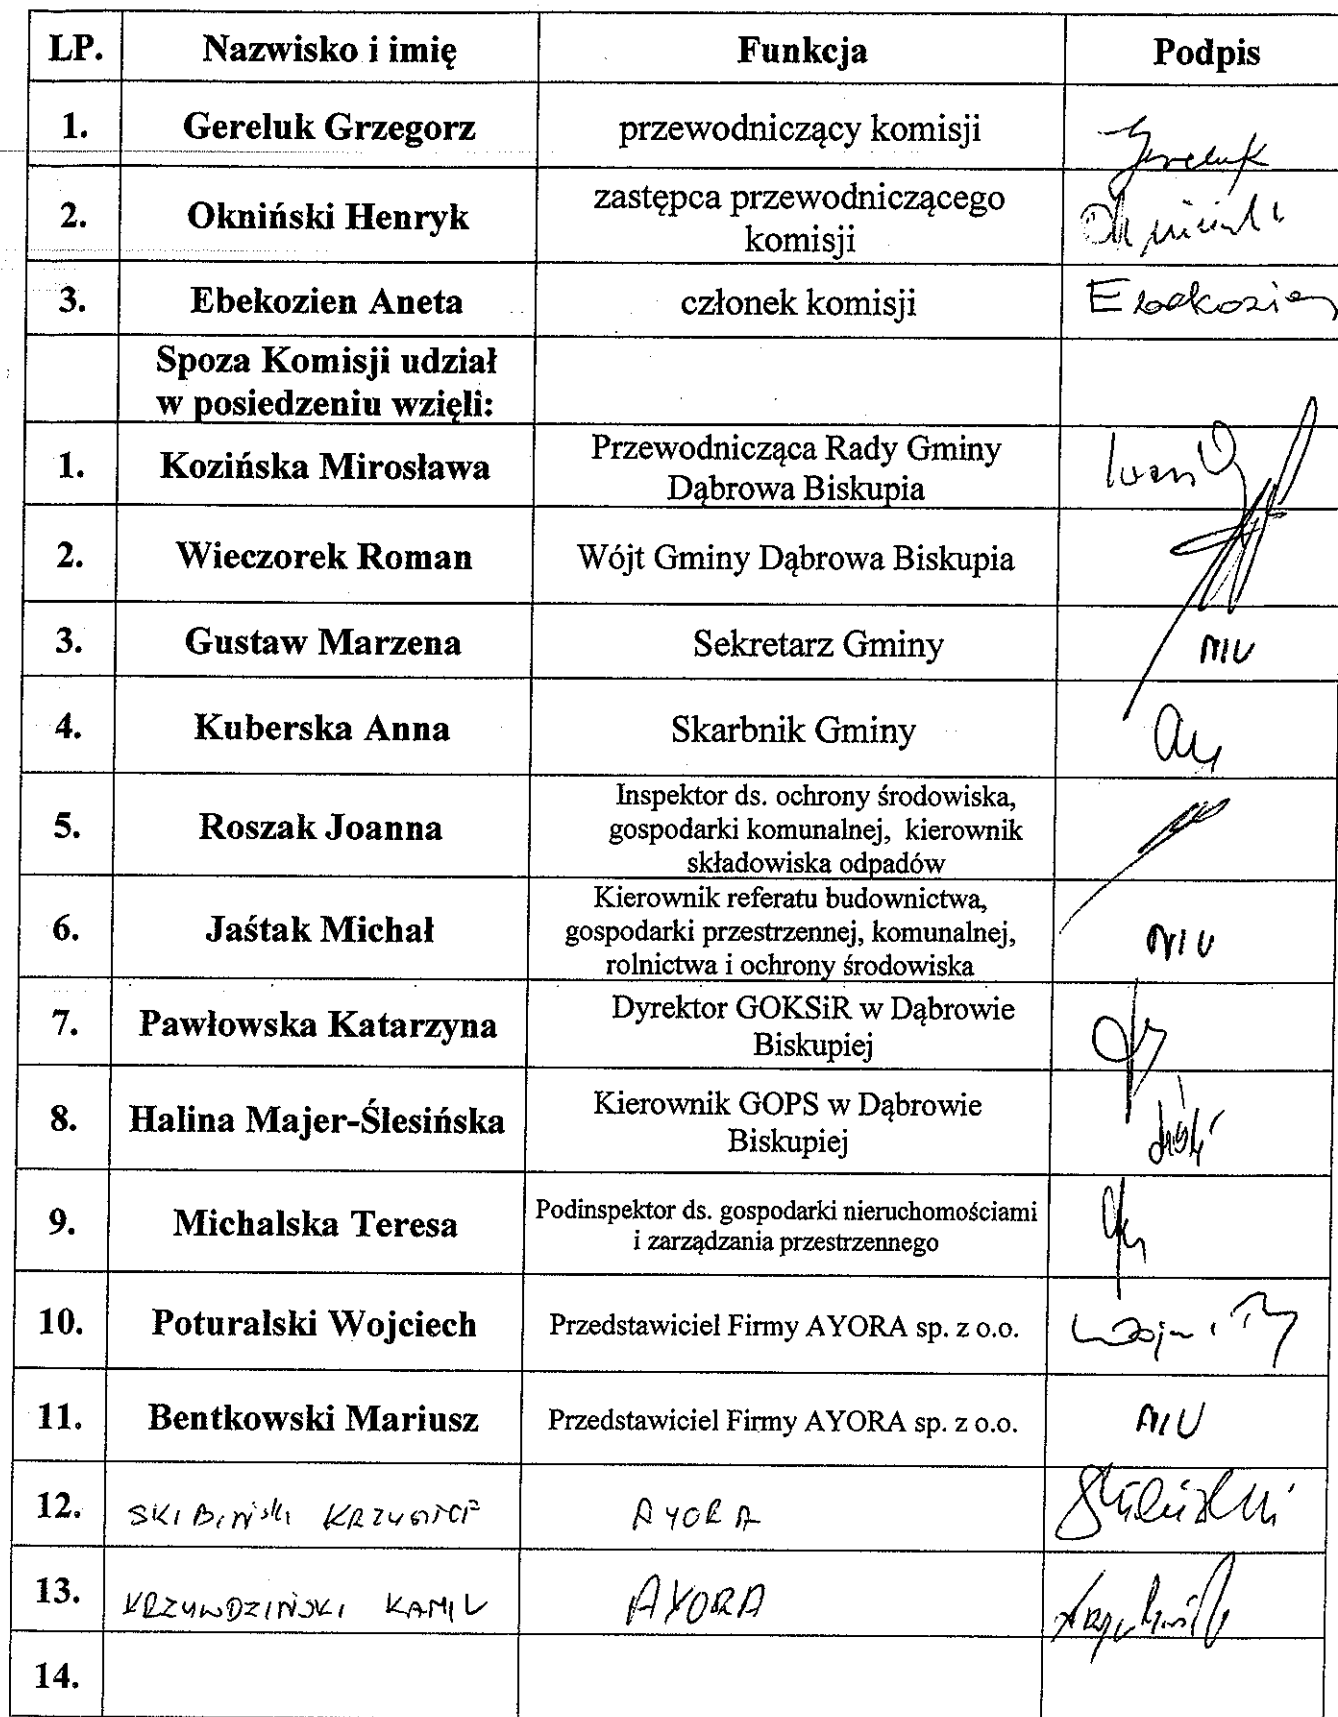 LP. Nazwisko i imię Funkcja Podpis
1. Gereluk Grzegorz przewodniczący komisji Gereluk
2. Okniński Henryk zastępca przewodniczącego
komisji
3. Ebekozien Aneta członek komisji Ebekozien
Spoza Komisji udział
w posiedzeniu wzięli:
1. Kozińska Mirosława Przewodnicząca Rady Gminy
Dąbrowa Biskupia
2. Wieczorek Roman Wójt Gminy Dąbrowa Biskupia
3. Gustaw Marzena Sekretarz Gminy
4. Kuberska Anna Skarbnik Gminy
5. Roszak Joanna Inspektor ds. ochrony środowiska,
gospodarki komunalnej, kierownik
składowiska odpadów
6. Jaśtak Michał Kierownik referatu budownictwa,
gospodarki przestrzennej, komunalnej,
rolnictwa i ochrony środowiska
7. Pawłowska Katarzyna Dyrektor GOKSiR w Dąbrowie
Biskupiej
8. Halina Majer-Ślesińska Kierownik GOPS w Dąbrowie
Biskupiej
9. Michalska Teresa Podinspektor ds. gospodarki nieruchomościami
i zarządzania przestrzennego
10. Poturalski Wojciech Przedstawiciel Firmy AYORA sp. z o.o.
11. Bentkowski Mariusz Przedstawiciel Firmy AYORA sp. z o.o.
12. SKIBIŃSKI KRZYSZTOF AYORA
13. KRZYWDZIŃSKI KAMIL AYORA
14.